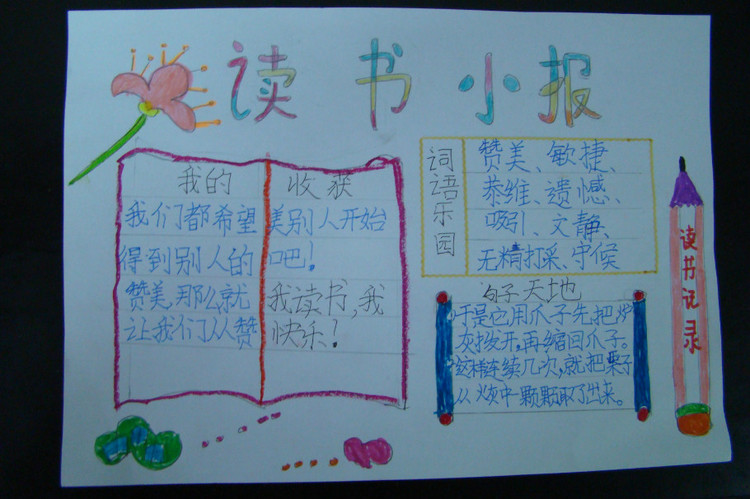 读书小报
我的
我们都希望
得到别人的
赞美,那么就
让我们从赞
收获
美别人开始
吧!
我读书,我
快乐!
词语乐园
赞美、敏捷、
恭维、遗憾、
吸引、文静、
无精打采、守候
句子天地
于是它用爪子先把炉
灰拨开,再缩回爪子。
这样连续几次,就把栗子
从火炭中一颗颗取了出来。
读书记录